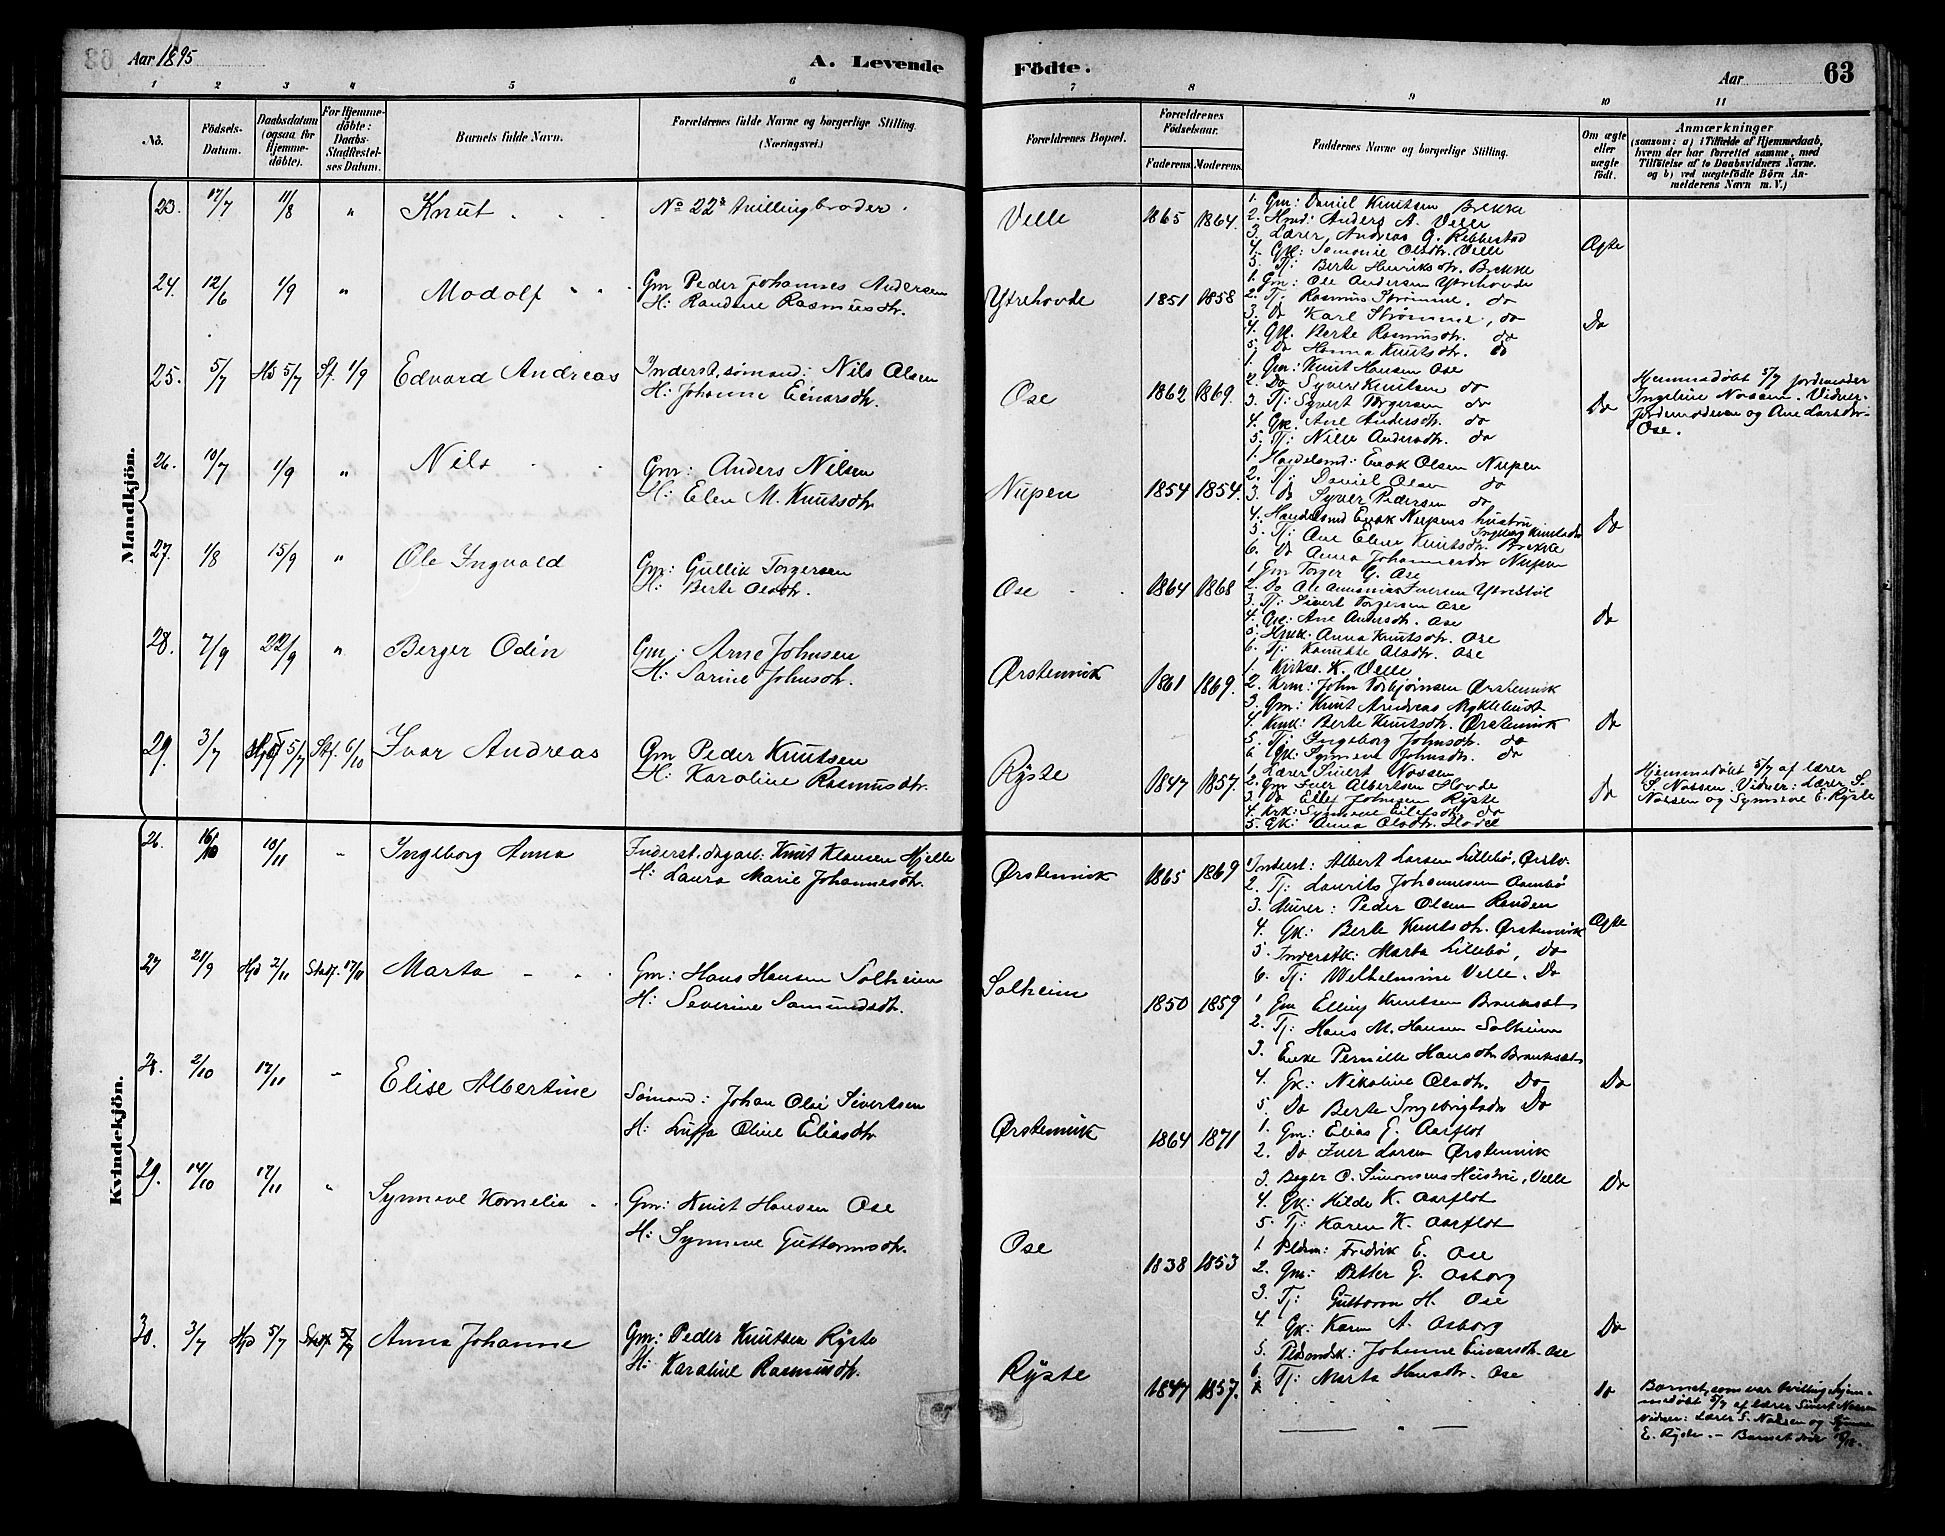 Aar 1895
A. Levende
Födte.
Aar
63
1 2 3 4 5 6 7 8 9 10 11
No.
Födsels-Datum.
Daabsdatum (ogsaa for Hjemmedöbte).
For Hjemmedöbte: Daabs-Stadfestelses Datum.
Barnets fulde Navn.
Forældrenes fulde Navne og borgerlige Stilling. (Næringsvei.)
Forældrenes Bopæl.
Forældrenes Födselsaar.
Faderens. Moderens.
Faddernes Navne og borgerlige Stilling.
Om ægte eller uægte födt.
Anmærkninger (saasom: a) i Tilfælde af Hjemmedaab, hvem der har forrettet samme, med Tilföielse af to Daabsvidners Navne, og b) ved uægtefödte Börn Anmelderens Navn m. V.)
Mandkjön.
23. 17/7 11/8 " Knut No 22s tvillingbroder. Velle 1865 1864.
1. Gm: Daniel Knutsen Brekke
2. Hmd: Anders A. Velle
3. Lærer, Andreas G. Rebbestad
4. Gk: Simonie Olsdtr. Velle
5. Tj: Berte Henriksdtr. Brekke
Ægte
24. 12/6 1/9 " Modolf
Gm Peder Johannes Andersen
H: Randine Rasmusdtr.
Ytrehovde 1851 1858
1. Gm: Ole Andersen Ytrehovde
2. Tj: Rasmus Strømme. do
3. Do Karl Strømme, do
4. Gk. Berte Rasmusdtr. do
5. Do Hanna Knutsdtr. do
Do
25. 5/7 Hd 5/7 St. 1/9 Edvard Andreas
Inderst, sømand: Nils Olsen
H: Johanne Einarsdtr.
Ose 1862 1869.
1. Gm: Knut Hansen Ose
2. Do Syver Knutsen do
3. Tj: Syvert Torgersen do
4. Gk. Ane Andersdtr. do
5. Tj: Nille Andersdtr. do
Do
Hjemmedøbt 5/7 jordmoder
Ingeline Nossen. Vidner:
Jordemoderen og Ane Larsdtr.
Ose.
26. 10/7 1/9 " Nils
Gm: Anders Nilsen
H: Elen M. Knutsdtr
Nupen 1854 1854.
1. Handelsmd: Enok Olsen Nupen
2. Tj: Daniel Olsen do
3. do Syver Pedersen do
4. Handelsmd Enok Nupens hustru Ingeborg Knutsdtr
5. Tj: Ane Eline Knutsdtr. Brekke
6. do Anna Johannesdtr Nupen
Do
27. 1/8 15/9 " Ole Ingvald
Gm: Gullik Torgersen
H: Berte Olsdtr.
Ose 1864 1868
1. Gm Torger G. Ose
2. Do Ole Iversen Ytrestøl
3. Tj: Sivert Torgersen Ose
4. Gk: Ane Andersdtr. Ose
5. Anna Knutsdtr. Ose
6. Tj: Olsdtr. Ose
Do
28. 7/9 22/9 " Berger Odin
Gm: Arne Johnsen
H: Sarine Johnsdtr.
Ørstenvik 1861 1869.
1. Kirkes. K. Velle
2. Krm: John Torbjørnsen Ørstenvik
3. Gm: Knut Andreas Myklebust
4. Krmk: Berte Knutsdtr. Ørstenvik
5. Tj: Ingeborg Johnsdtr. do
6. Gk: Synneve Johnsdtr. do
Do
29. 3/7 Hjd 5/7 Stf. 6/10 Ivar Andreas
Gm Peder Knutsen
H: Karoline Rasmusdtr.
Ryste 1847 1857.
1. Lærer Sivert Nossen
2. Gm Iver Albertsen Hovde
3. Do Ellef Johnsen Ryste
4. Krk: Synneve Eilefsdtr. do
5. Gk: Anna Olsdtr. Hovde
Do
Hjemmedøbt 5/7 af lærer
S. Nossen. Vidner: Lærer S.
Nossen og Synneve E. Ryste
Kvindekjön.
26. 16/10 10/11 " Ingeborg Anna
Inderst. dagarb: Knut Klausen Hjelle
H: Laura Marie Johannesdtr.
Ørstenvik 1865 1869
1. Inderst: Albert Larsen Lillebø, Ørstv.
2. Tj: Laurits Johannesen Aambø
3. Murer: Peder Olsen Randen
4. Gk: Berte Knutsdtr. Ørstenvik
5. Inderstk: Marta Lillebø, Do
6. Tj: Wilhelmine Velle. Do
Ægte
27 21/9 Hjd 2/11 Stadf. 17/11 Marta
Gm: Hans Hansen Solheim
H: Severine Samundsdtr.
Solheim 1850 1859
1. Gm Elling Knutsen Brauteset
2. Tj: Hans M. Hansen Solheim
3. Enke Pernille Hansdtr Brauteset
4. Gk: Nikoline Olsdtr. Do
5. Do Berte Ingebrigtsdtr Do
Do
28. 2/10 17/11 " Elise Albertine
Sømand: Johan Olai Sivertsen
H: Luffa Oline Eliasdtr
Ørstenvik 1864 1871
1. Gm: Elias E. Aarflot
2. Do Iver Larsen Ørstenvik
3. Bager O. Simonsens Hustru, Velle
4. Gk: Hilde K. Aarflot
5. Tj: Karen K. Aarflot
Do
29. 14/10 17/11 " Synneve Kornelia
Gm: Knut Hansen Ose
H: Synneve Guttormsdtr.
Ose 1838 1853
1. Fredrik E. Ose
2. Gm: Petter G. Aasborg
3. Tj: Guttorm H. Ose
4. Gk: Karen A. Aasborg
5. Johanne Einarsdtr. Ose
6. Tj: Marta Hansdtr. Ose
Do
30. 3/7 Hjd 5/7 Stadf. Anna Johanne
Gm: Peder Knutsen Ryste
H: Karoline Rasmusdtr.
Ryste 1847 1857.
" "
Do
Barnet, som var tvilling, hjem-
medøbt 5/7 af lærer Sivert Nossen
Vidner: Lærer S. Nossen og Synneve
E. Ryste. — Barnet døde